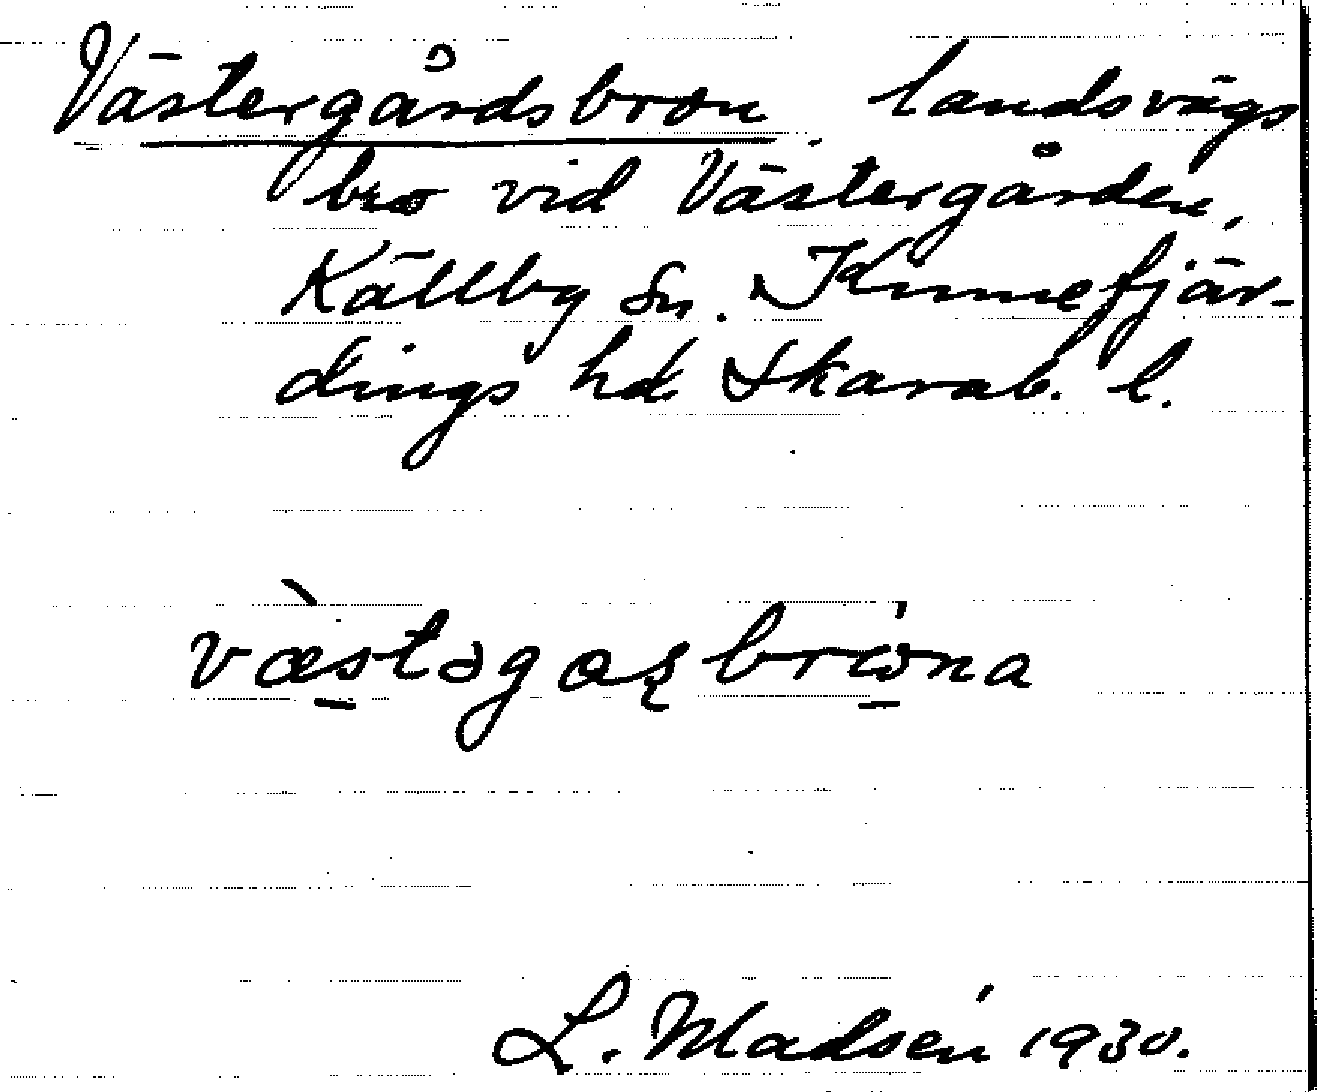 Västergårdsbron, landsvägs
bro vid Västergården,
Källby sn. Kinnefjär-
dings hd. Skarab. l.
L. Madsén 1930.